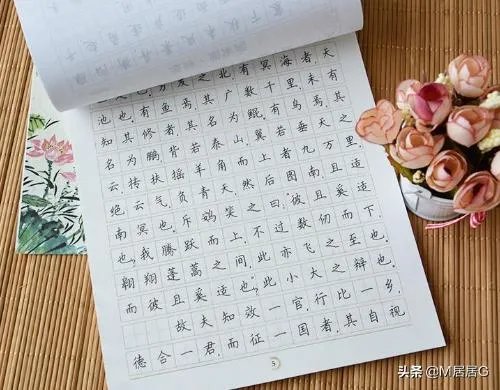 之北有冥海者,天
池也。有鱼焉,其广数千里,未有
知其修者,其名为鲲。有鸟焉,其
名为鹏,背若泰山,翼若垂天之
云,抟扶摇羊角而上者九万里,
绝云气,负青天,然后图南,且适
南冥也。斥鴳笑之曰:“彼且奚适
也?我腾跃而上,不过数仞而下,
翱翔蓬蒿之间,此亦飞之至也。
而彼且奚适也?”此小大之辩也。
故夫知效一官,行比一乡,
德合一君,而征一国者,其自视
5
头条 @M居居G